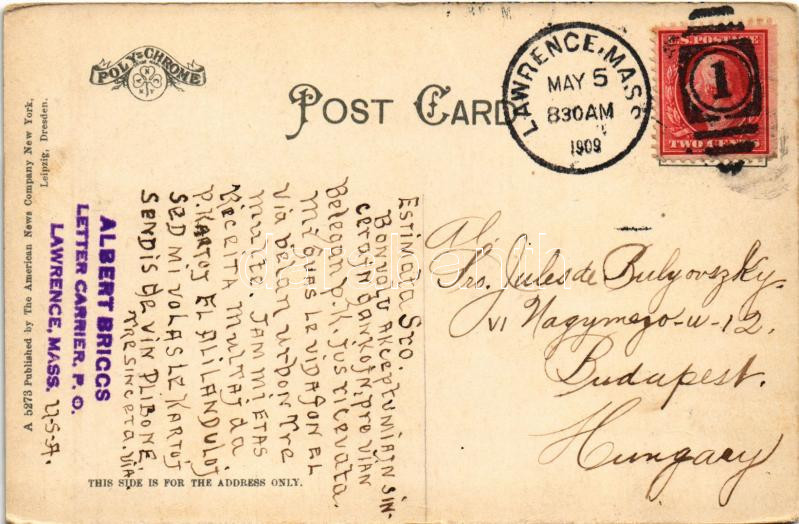 POLY-CHROME
POST CARD
LAWRENCE, MASS
MAY 5
830AM
1909
1
U.S. POSTAGE
TWO CENTS
A 5273 Published by The American News Company New York,
Leipzig, Dresden.
ALBERT BRIGGS
LETTER CARRIER, P. O.
LAWRENCE, MASS. U.S.A.
Estimata Sro.
Bonvolu akceptu miajn sin-
cerajn dankojn, pro vian
Belegan P.K. ĵus ricevata.
Mi ĝuas le vidaĵon el
via belan urbon tre
multe. Jam mi etas
Riceita multaj da
P. Kartoj el alilanduloj
sed mi volas le kartoj
sendis de vin plibone
Tre sincera, via.
Al,
Sro. Jules de Bulyovszky.
VI Nagymezo-u-12.
Budapest.
Hungary
THIS SIDE IS FOR THE ADDRESS ONLY.
darabanth